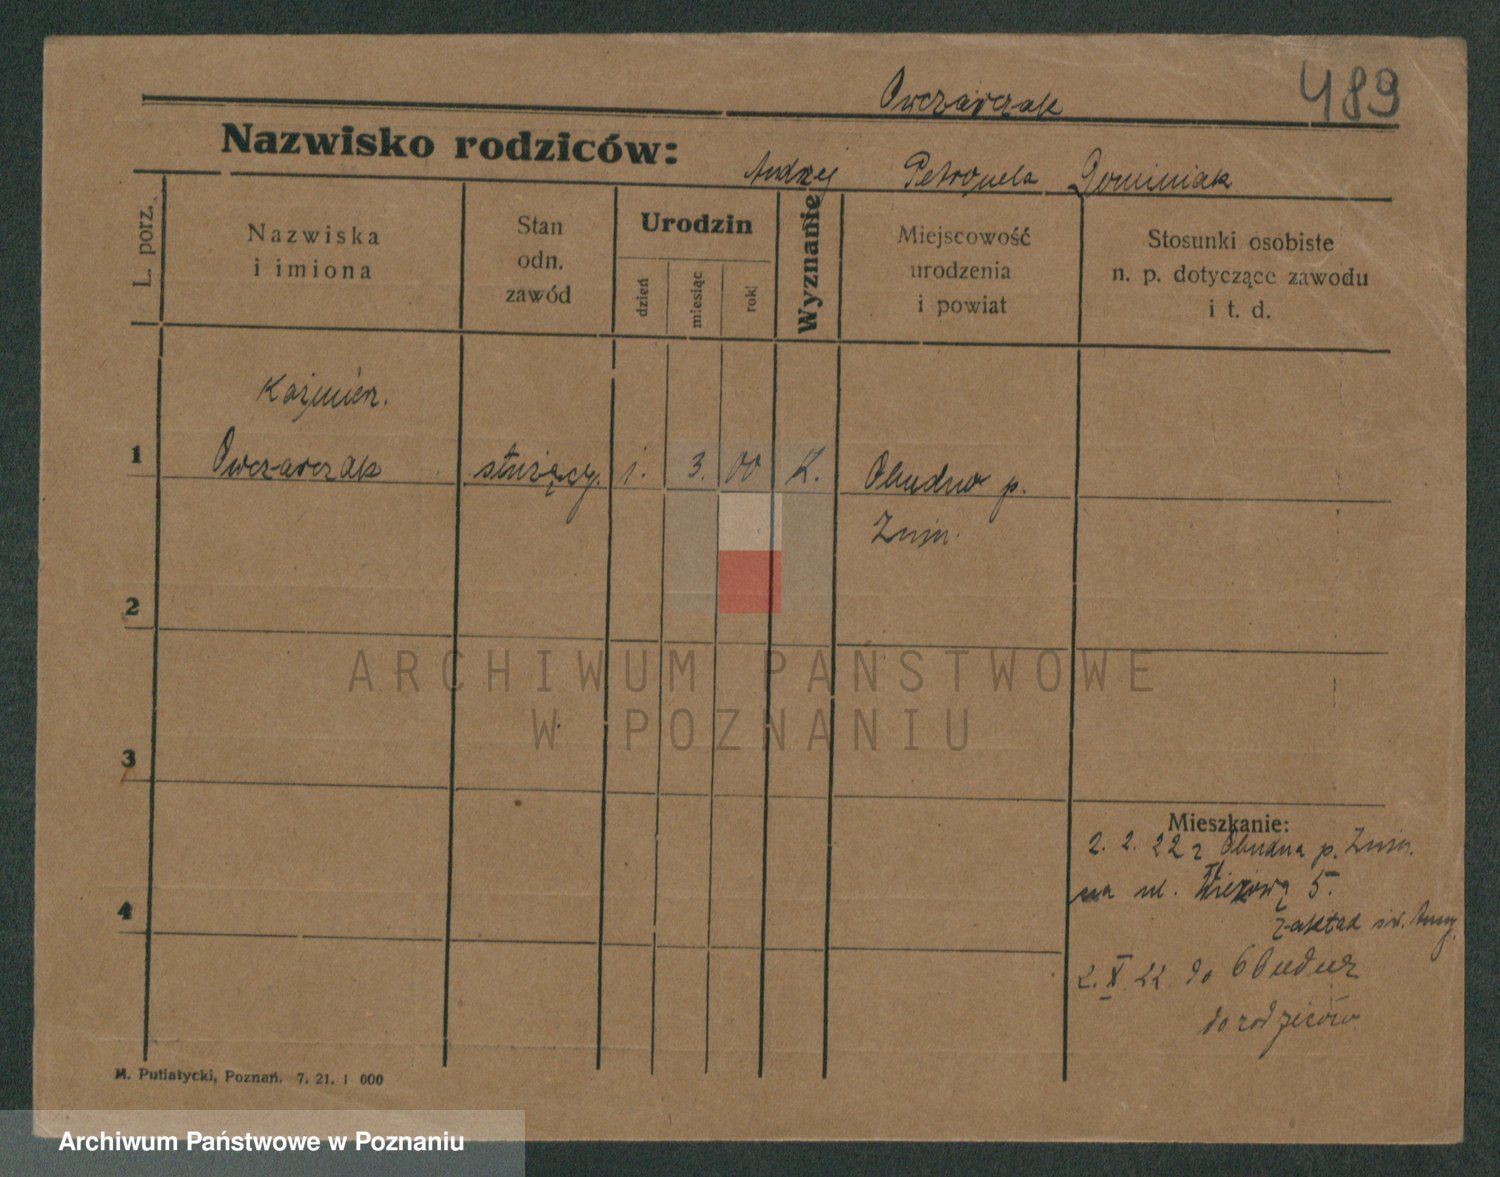 Owczarczak 489
Nazwisko rodziców:
Andrzej Petronela Dominiak
L. porz.
Nazwiska
i imiona
Stan
odn.
zawód
Urodzin
dzień
miesiąc
rok
Wyznanie
Miejscowość
urodzenia
i powiat
Stosunki osobiste
n. p. dotyczące zawodu
i t. d.
Kaźmierz.
1 Owczarczak służący. 1. 3. 00 K. Obudno p.
Żnin.
2
3
4
ARCHIWUM PAŃSTWOWE
W POZNANIU
Mieszkanie:
2. 2. 22 z Obudna p. Żnin.
na ul. 5.
zakład św. Anny.
2. X. 22 do
do rodziców
M. Putiatycki, Poznań. 7. 21. 1 000
Archiwum Państwowe w Poznaniu